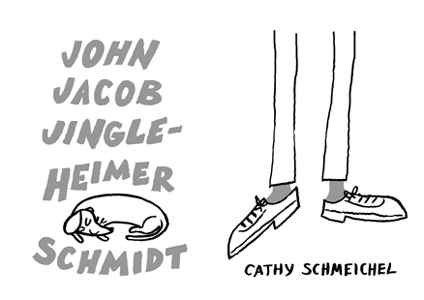 JOHN
JACOB
JINGLE-
HEIMER
SCHMIDT
CATHY SCHMEICHEL